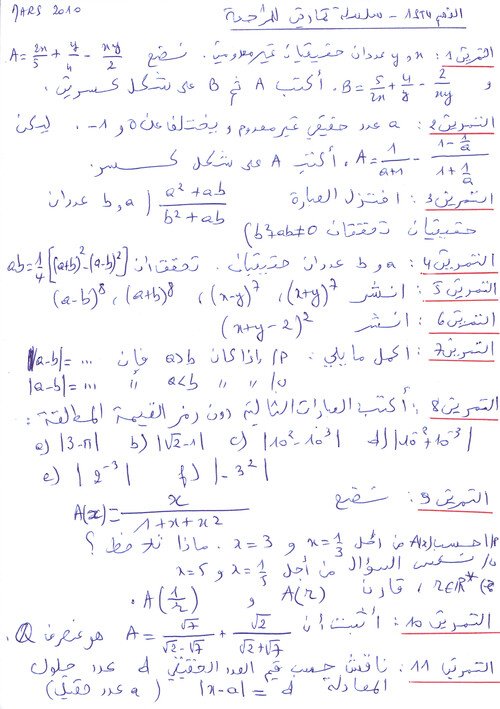 MARS 2010
القسم 1STM - سلسلة تمارين للمراجعة
التمرين 1: x و y عددان حقيقيان غير معدومين. نضع A = 2x/5 + y/4 - xy/2
و B = 5/2x + 4/y - 2/xy. أكتب A ثم B على شكل كسرين.
التمرين 2: a عدد حقيقي غير معدوم و يختلف عن 0 و 1-. ليكن
A = 1/(a+1) - (1 - 1/a)/(1 + 1/a), أكتب A على شكل كسر.
التمرين 3: اختزل العبارة (a² + ab)/(b² + ab) (a و b عددان
حقيقيان تحققان b²+ab≠0)
التمرين 4: a و b عددان حقيقيان. تحقق أن ab = 1/4[(a+b)² - (a-b)²]
التمرين 5: انشر (x+y)⁷, (x-y)⁷, (a+b)⁸, (a-b)⁸
التمرين 6: انشر (x+y-2)²
التمرين 7: اكمل مايلي: P/ إذا كان a>b فإن |a-b| = ...
ں/ " " a<b " |a-b| = ...
التمرين 8: أكتب العبارات التالية دون رمز القيمة المطلقة:
a) |3-π| b) |√2-1| c) |10⁻²-10⁻³| d) |10⁻²+10⁻³|
e) |2⁻³| f) |-3²|
التمرين 9: نضع A(x) = x/(1+x+x²)
P/ احسب A(x) من أجل x=1/3 و x=3. ماذا تلاحظ؟
ں/ نفس السؤال من أجل x=1/5 و x=5
r∈ℝ*, قارن A(r) و A(1/r).
التمرين 10: أثبت أن A = √7/(√2-√7) + √2/(√2+√7) هو عنصر من Q.
التمرين 11: ناقش حسب قيم العدد الحقيقي d عدد حلول
المعادلة |x-a| = d (a عدد حقيقي)